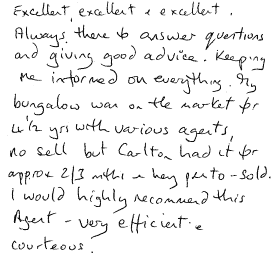 Excellent, excellent & excellent.
Always there to answer questions
and giving good advice. Keeping
me informed on everything. My
bungalow was on the market for
4½ yrs with various agents,
no sell but Carlton had it for
approx 2/3 mths & hey presto - sold.
I would highly recommend this
Agent - very efficient &
courteous.